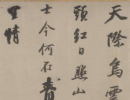 天際烏雲
頭紅日照山
士今何在青
丁情